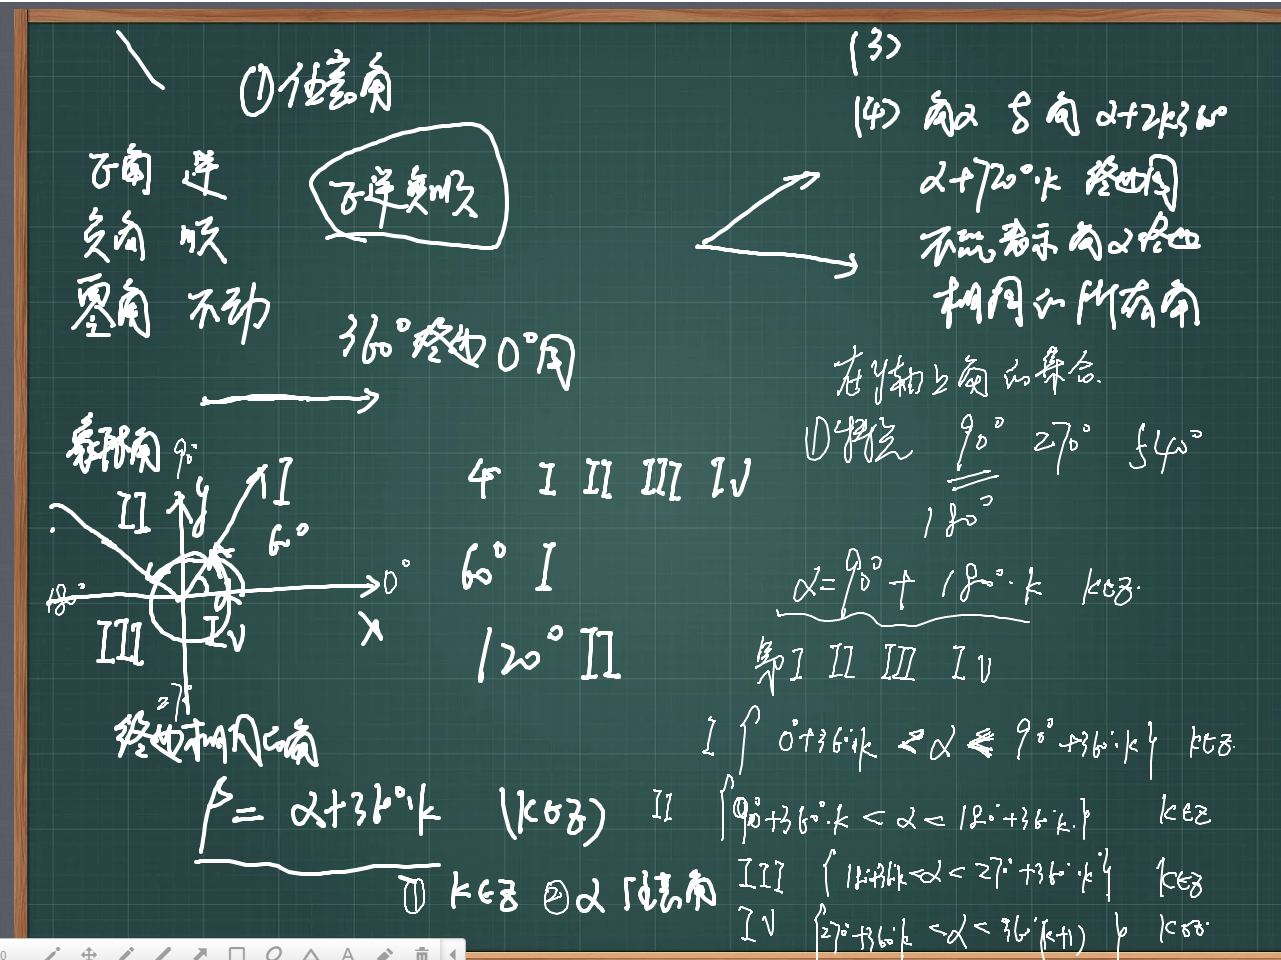 ①任意角
正角 逆
负角 顺
零角 不动
正逆负顺
360°终边0°同
象限角
90°
II
y
I
60°
180°
0°
III
IV
x
270°
4 I II III IV
60° I
120° II
终边相同的角
β = α+360°·k (k∈Z)
① k∈Z ② α 任意角
(3)
(4) 角α 与角 α+2k360°
α+720°·k 终边同
不能表示角α终边
相同的所有角
在y轴上角的集合.
①特点 90° 270° 540°
180°
α=90°+180°·k k∈Z.
第I II III IV
I { 0°+360°·k < α < 90°+360°·k } k∈Z.
II {90°+360°·k < α < 180°+360°k.} k∈Z
III {180°+360°k<α<270°+360°·k°} k∈Z
IV {270°+360°k <α< 360°(k+1) } k∈Z.